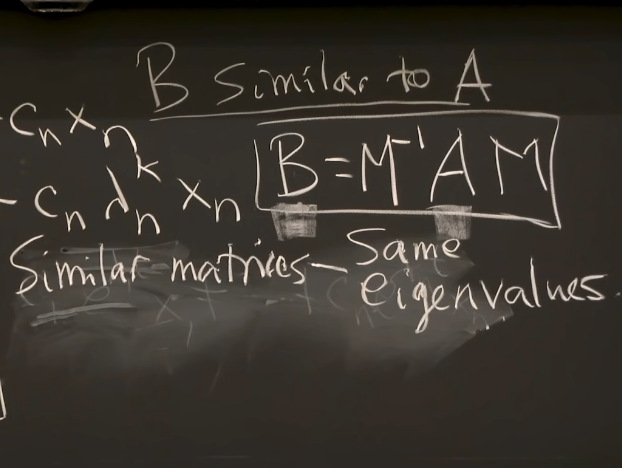 B Similar to A
- cₙ xₙ
B = M⁻¹ A M
- cₙ λₙᵏ xₙ
Similar matrices - Same
eigenvalues